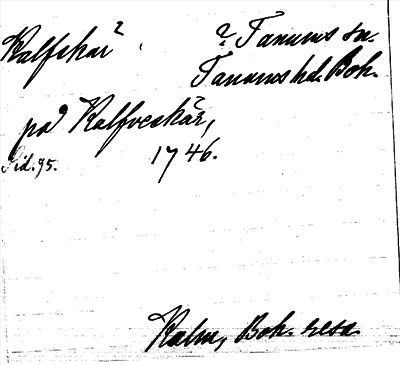 Kalfskär?
? Tanums sn.
Tanums hd. Boh.
på Kalfveskär,
Sid. 95. 1746.
Kalm, Boh. resa